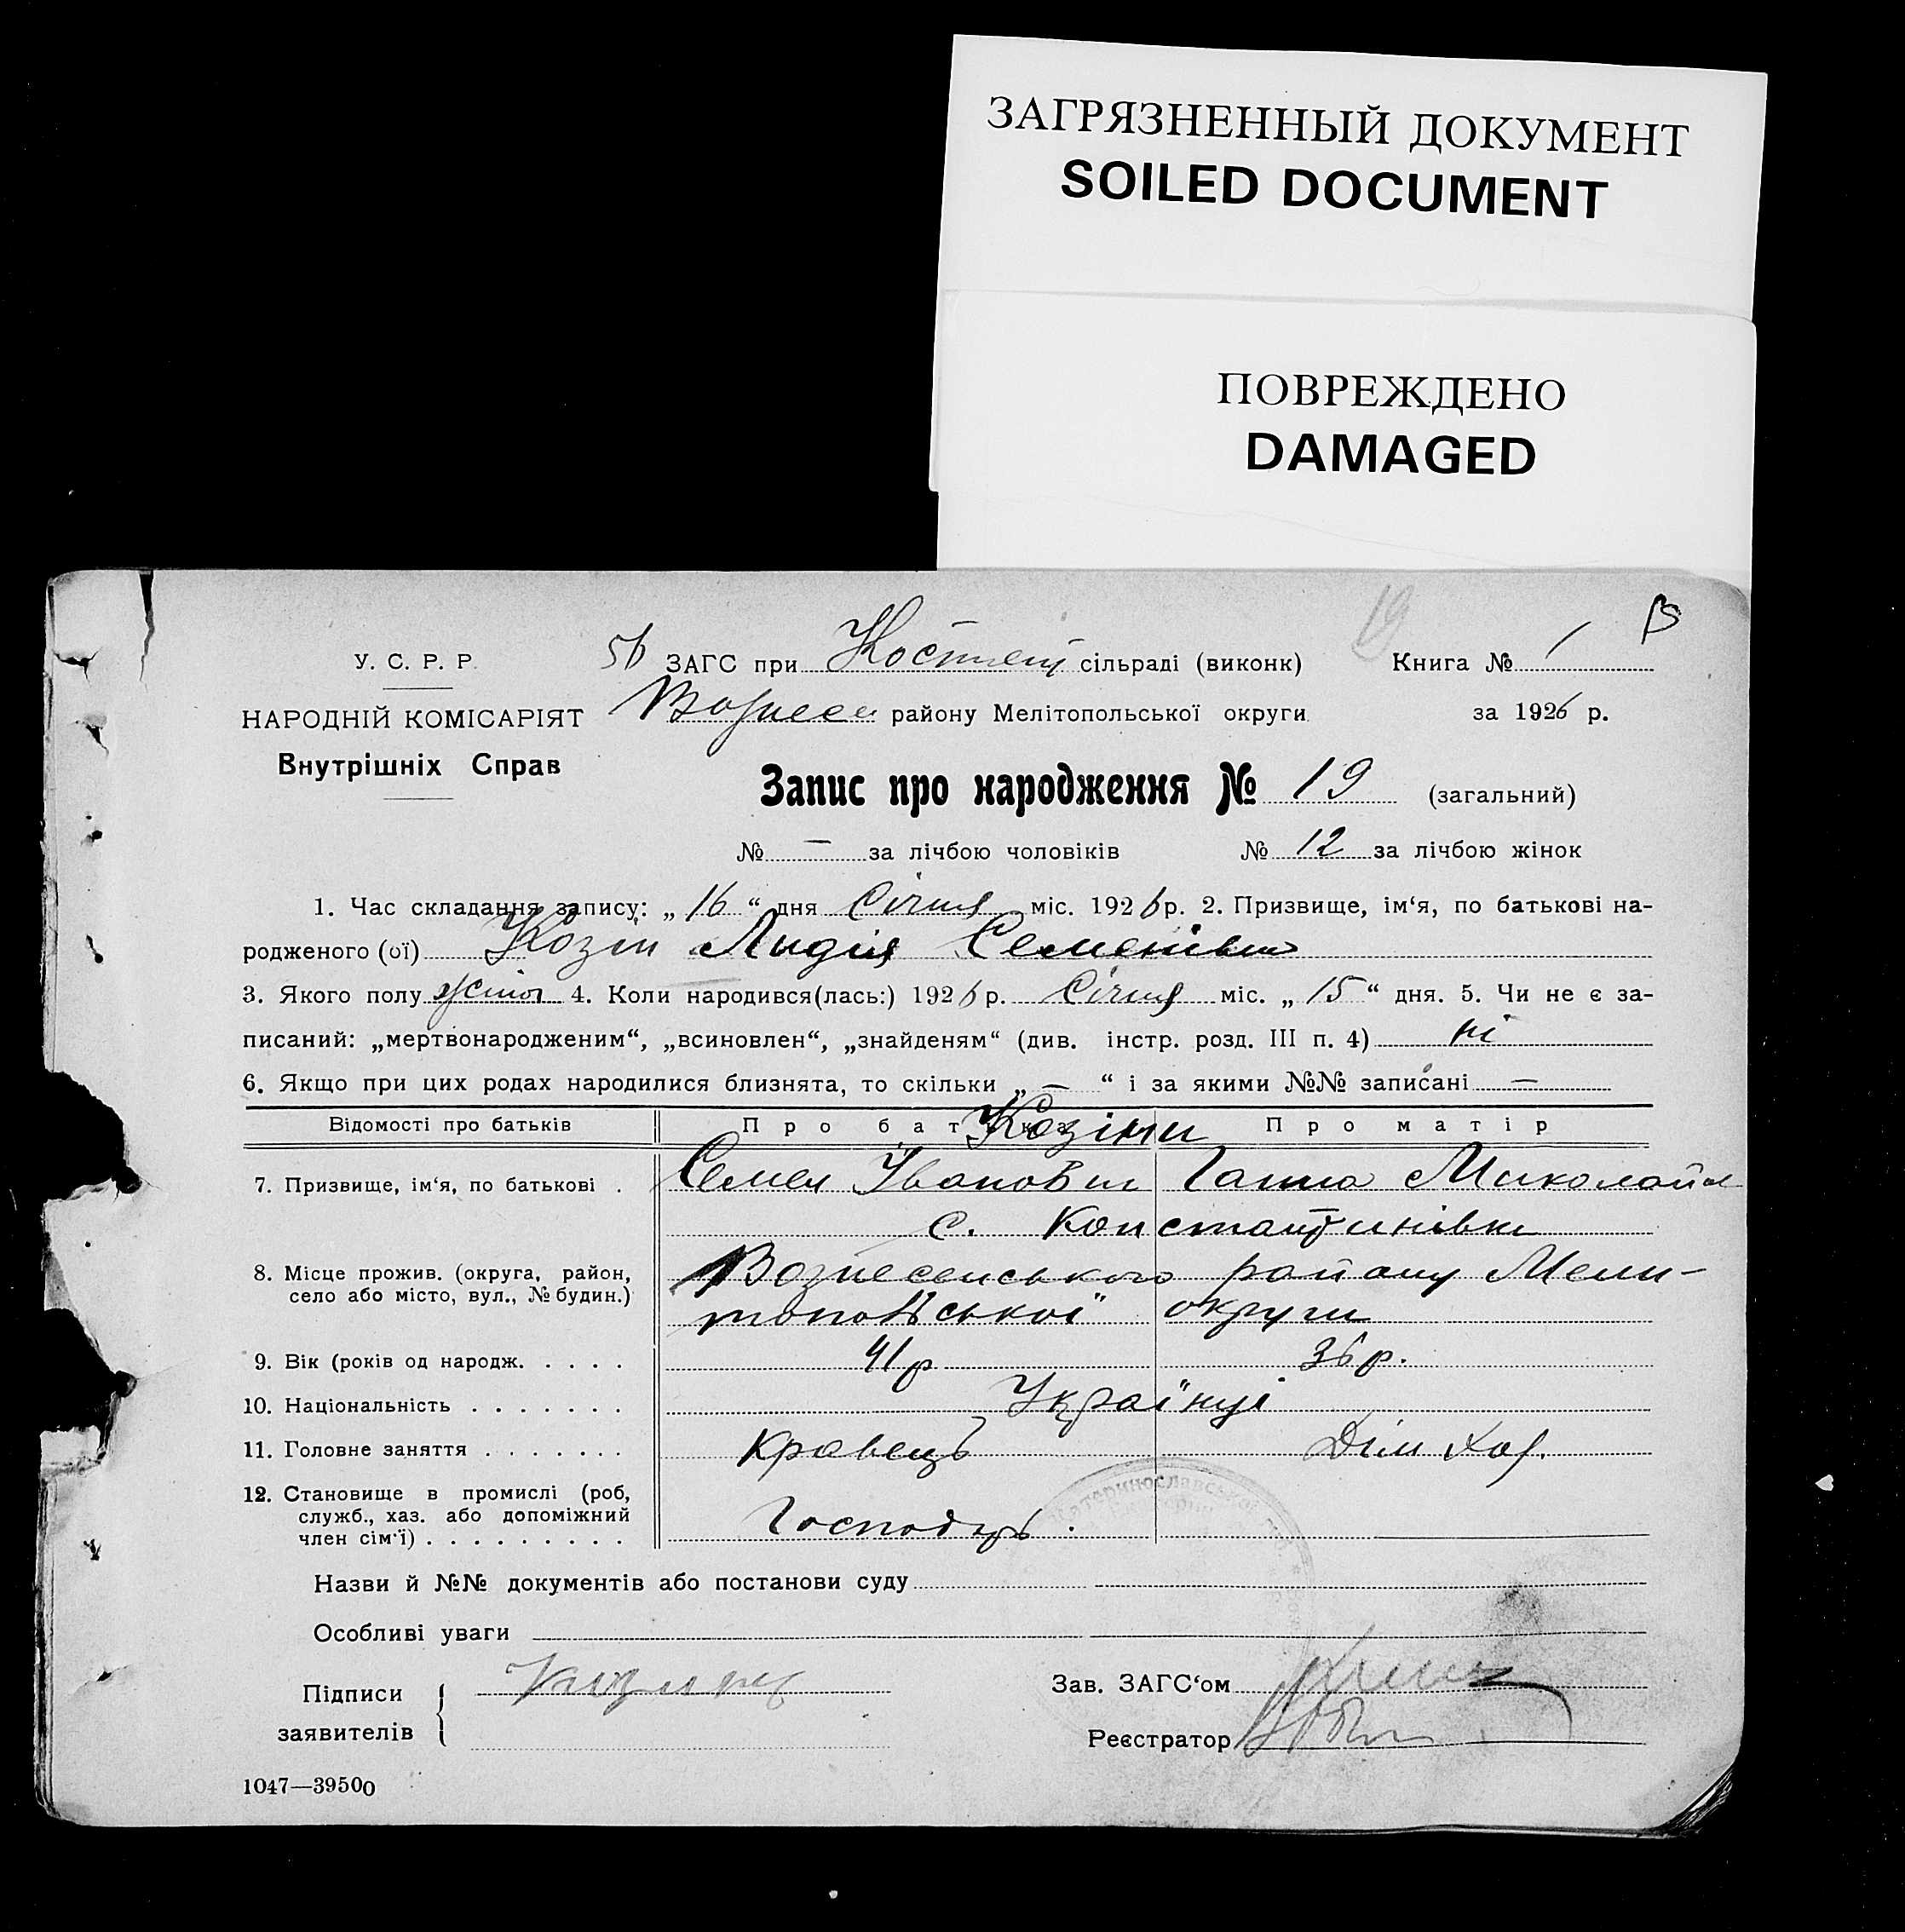 ЗАГРЯЗНЕННЫЙ ДОКУМЕНТ
SOILED DOCUMENT
ПОВРЕЖДЕНО
DAMAGED
19
У. С. Р. Р.
ЗАГС при сільраді (виконк) Книга № 1
НАРОДНІЙ КОМІСАРІЯТ
Внутрішніх Справ
Вознесе району Мелітопольської округи за 1926 р.
Запис про народження № 19 (загальний)
№ — за лічбою чоловіків № 12 за лічбою жінок
1. Час складання запису: „ 16 “ дня Січня міс. 1926 р. 2. Призвище, ім‘я, по батькові на-
родженого (ої) Козін Лидія Семенівна
3. Якого полу жіноч 4. Коли народився(лась:) 1926 р. Січня міс. „ 15 “ дня. 5. Чи не є за-
писаний: „мертвонародженим“, „всиновлен“, „знайденям“ (див. інстр. розд. III п. 4) ні
6. Якщо при цих родах народилися близнята, то скільки „ — “ і за якими №№ записані —
Відомості про батьків Про батька Про матір
Козіни
7. Призвище, ім‘я, по батькові . Семен Іванович Ганна Миколаївн
с. Константинівки
8. Місце прожив. (округа, район, село або місто, вул., № будин.) Вознесенського району Мели-
топольської округи
9. Вік (років од народж. . . . . 41 р 36 р.
10. Національність . . . . . . . Українці
11. Головне заняття . . . . . . . Кравець Дім хаз.
12. Становище в промислі (роб, служб., хаз. або допоміжний член сім‘ї) . . . . . . . . . Господарь.
Катеринославської
Назви й №№ документів або постанови суду
Особливі уваги
Підписи
заявителів
Зав. ЗАГС‘ом
Реєстратор
1047—39500